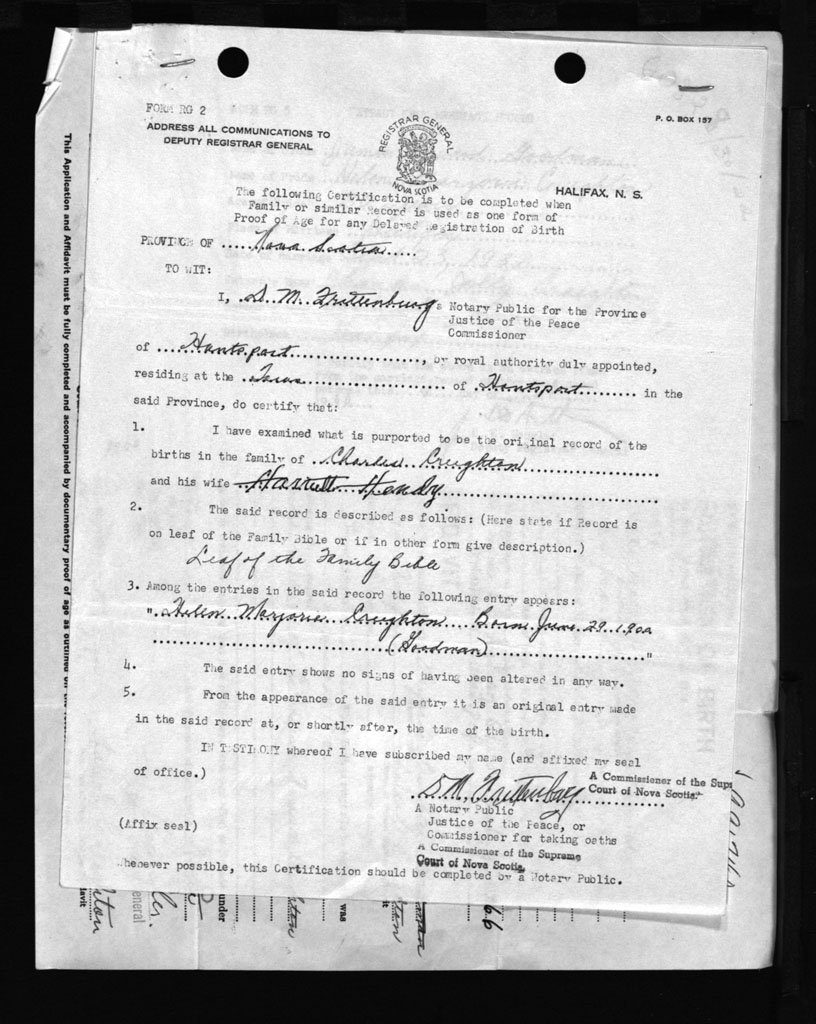 FORM RG 2
ADDRESS ALL COMMUNICATIONS TO
DEPUTY REGISTRAR GENERAL
REGISTRAR GENERAL
NOVA SCOTIA
P. O. BOX 157
HALIFAX, N. S.
The following Certification is to be completed when
Family or similar Record is used as one form of
Proof of Age for any Delayed Registration of Birth
PROVINCE OF .....Nova Scotia.....
TO WIT:
I, D. M. a Notary Public for the Province
Justice of the Peace
Commissioner
of ...Hantsport..................., by royal authority duly appointed,
residing at the .Town.................... of .Hantsport........ in the
said Province, do certify that:
1. I have examined what is purported to be the original record of the
births in the family of ..Charles..Creighton...................
and his wife Harriett Hendy..............................
2. The said record is described as follows: (Here state if Record is
on leaf of the Family Bible or if in other form give description.)
Leaf of the Family Bible
3. Among the entries in the said record the following entry appears:
"..Helen..Marjorie..Creighton...Born..June..29..1900
...................................(Goodman)......................."
4. The said entry shows no signs of having been altered in any way.
5. From the appearance of the said entry it is an original entry made
in the said record at, or shortly after, the time of the birth.
IN TESTIMONY whereof I have subscribed my name (and affixed my seal
of office.)
A Commissioner of the Sup
Court of Nova Scotia.
A Notary Public
Justice of the Peace, or
Commissioner for taking oaths
(Affix seal)
A Commissioner of the Supreme
Court of Nova Scotia.
Whenever possible, this Certification should be completed by a Notary Public.
This Application and Affidavit must be fully completed and accompanied by documentary proof of age as outlined on the
davit
eneral
under
was
it
66